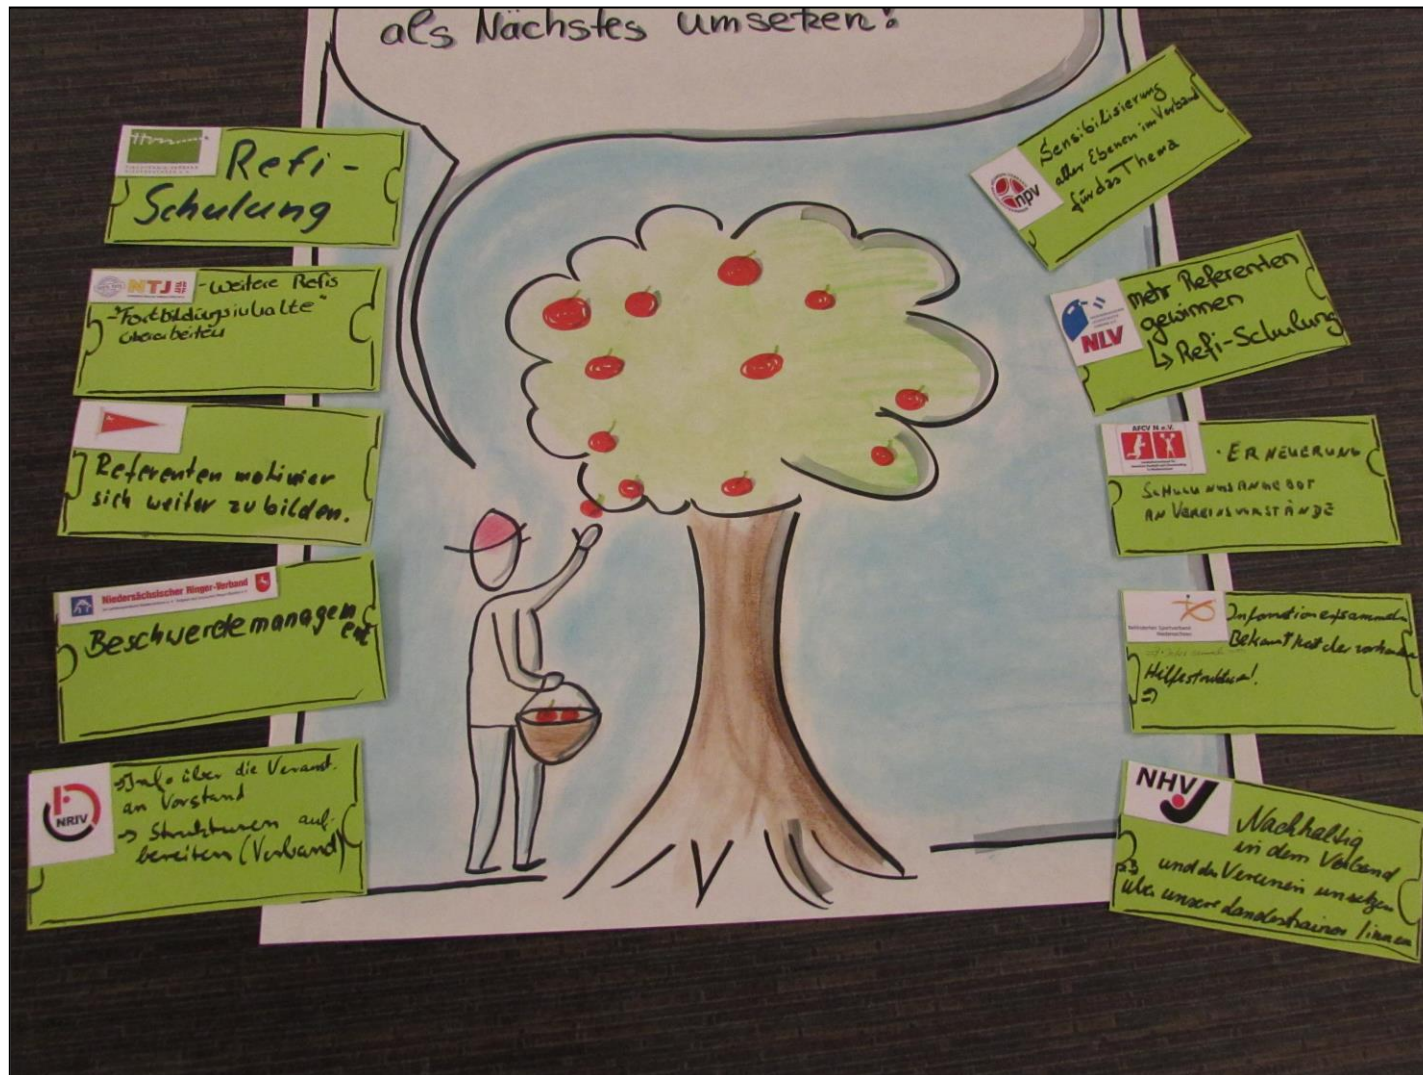 als Nächstes umsetzen!
Refi-
Schulung
NTJ
-weitere Refis
-"Fortbildungsinhalte"
überarbeiten
Referenten motivier
sich weiter zu bilden.
Niedersächsischer Ringer-Verband
Beschwerdemanagem
ent
NRIV
→Info über die Veranst.
an Vorstand
→ Strukturen auf-
bereiten (Verband)
Sensibilisierung
aller Ebenen im Verband
für das Thema
npv
mehr Referenten
gewinnen
↳ Refi-Schulung
NLV
AFCV N e.V.
· ERNEUERUNG
SCHULUNGSANGEBOT
AN VEREINSVORSTÄNDE
Behinderten Sportverband
Niedersachsen
Informationen sammeln
Bekanntheit der
Hilfestrukturen!
⇒
NHV
Nachhaltig
in dem Verband
und den Vereinen umsetzen
über unsere Landestrainer/innen